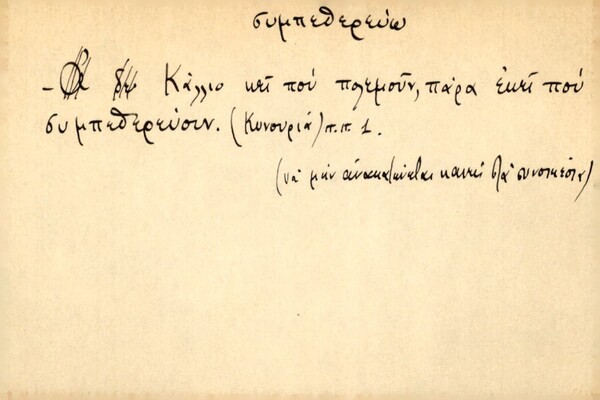 συμπεθερεύω
- Κάλλιο κεῖ πού πολεμοῦν, πάρα ἐκεῖ πού
συμπεθερεύουν. (Κυνουριά) π.π 1.
(νά μήν ἀνακατεύεται κανείς στά συνοικέσια)